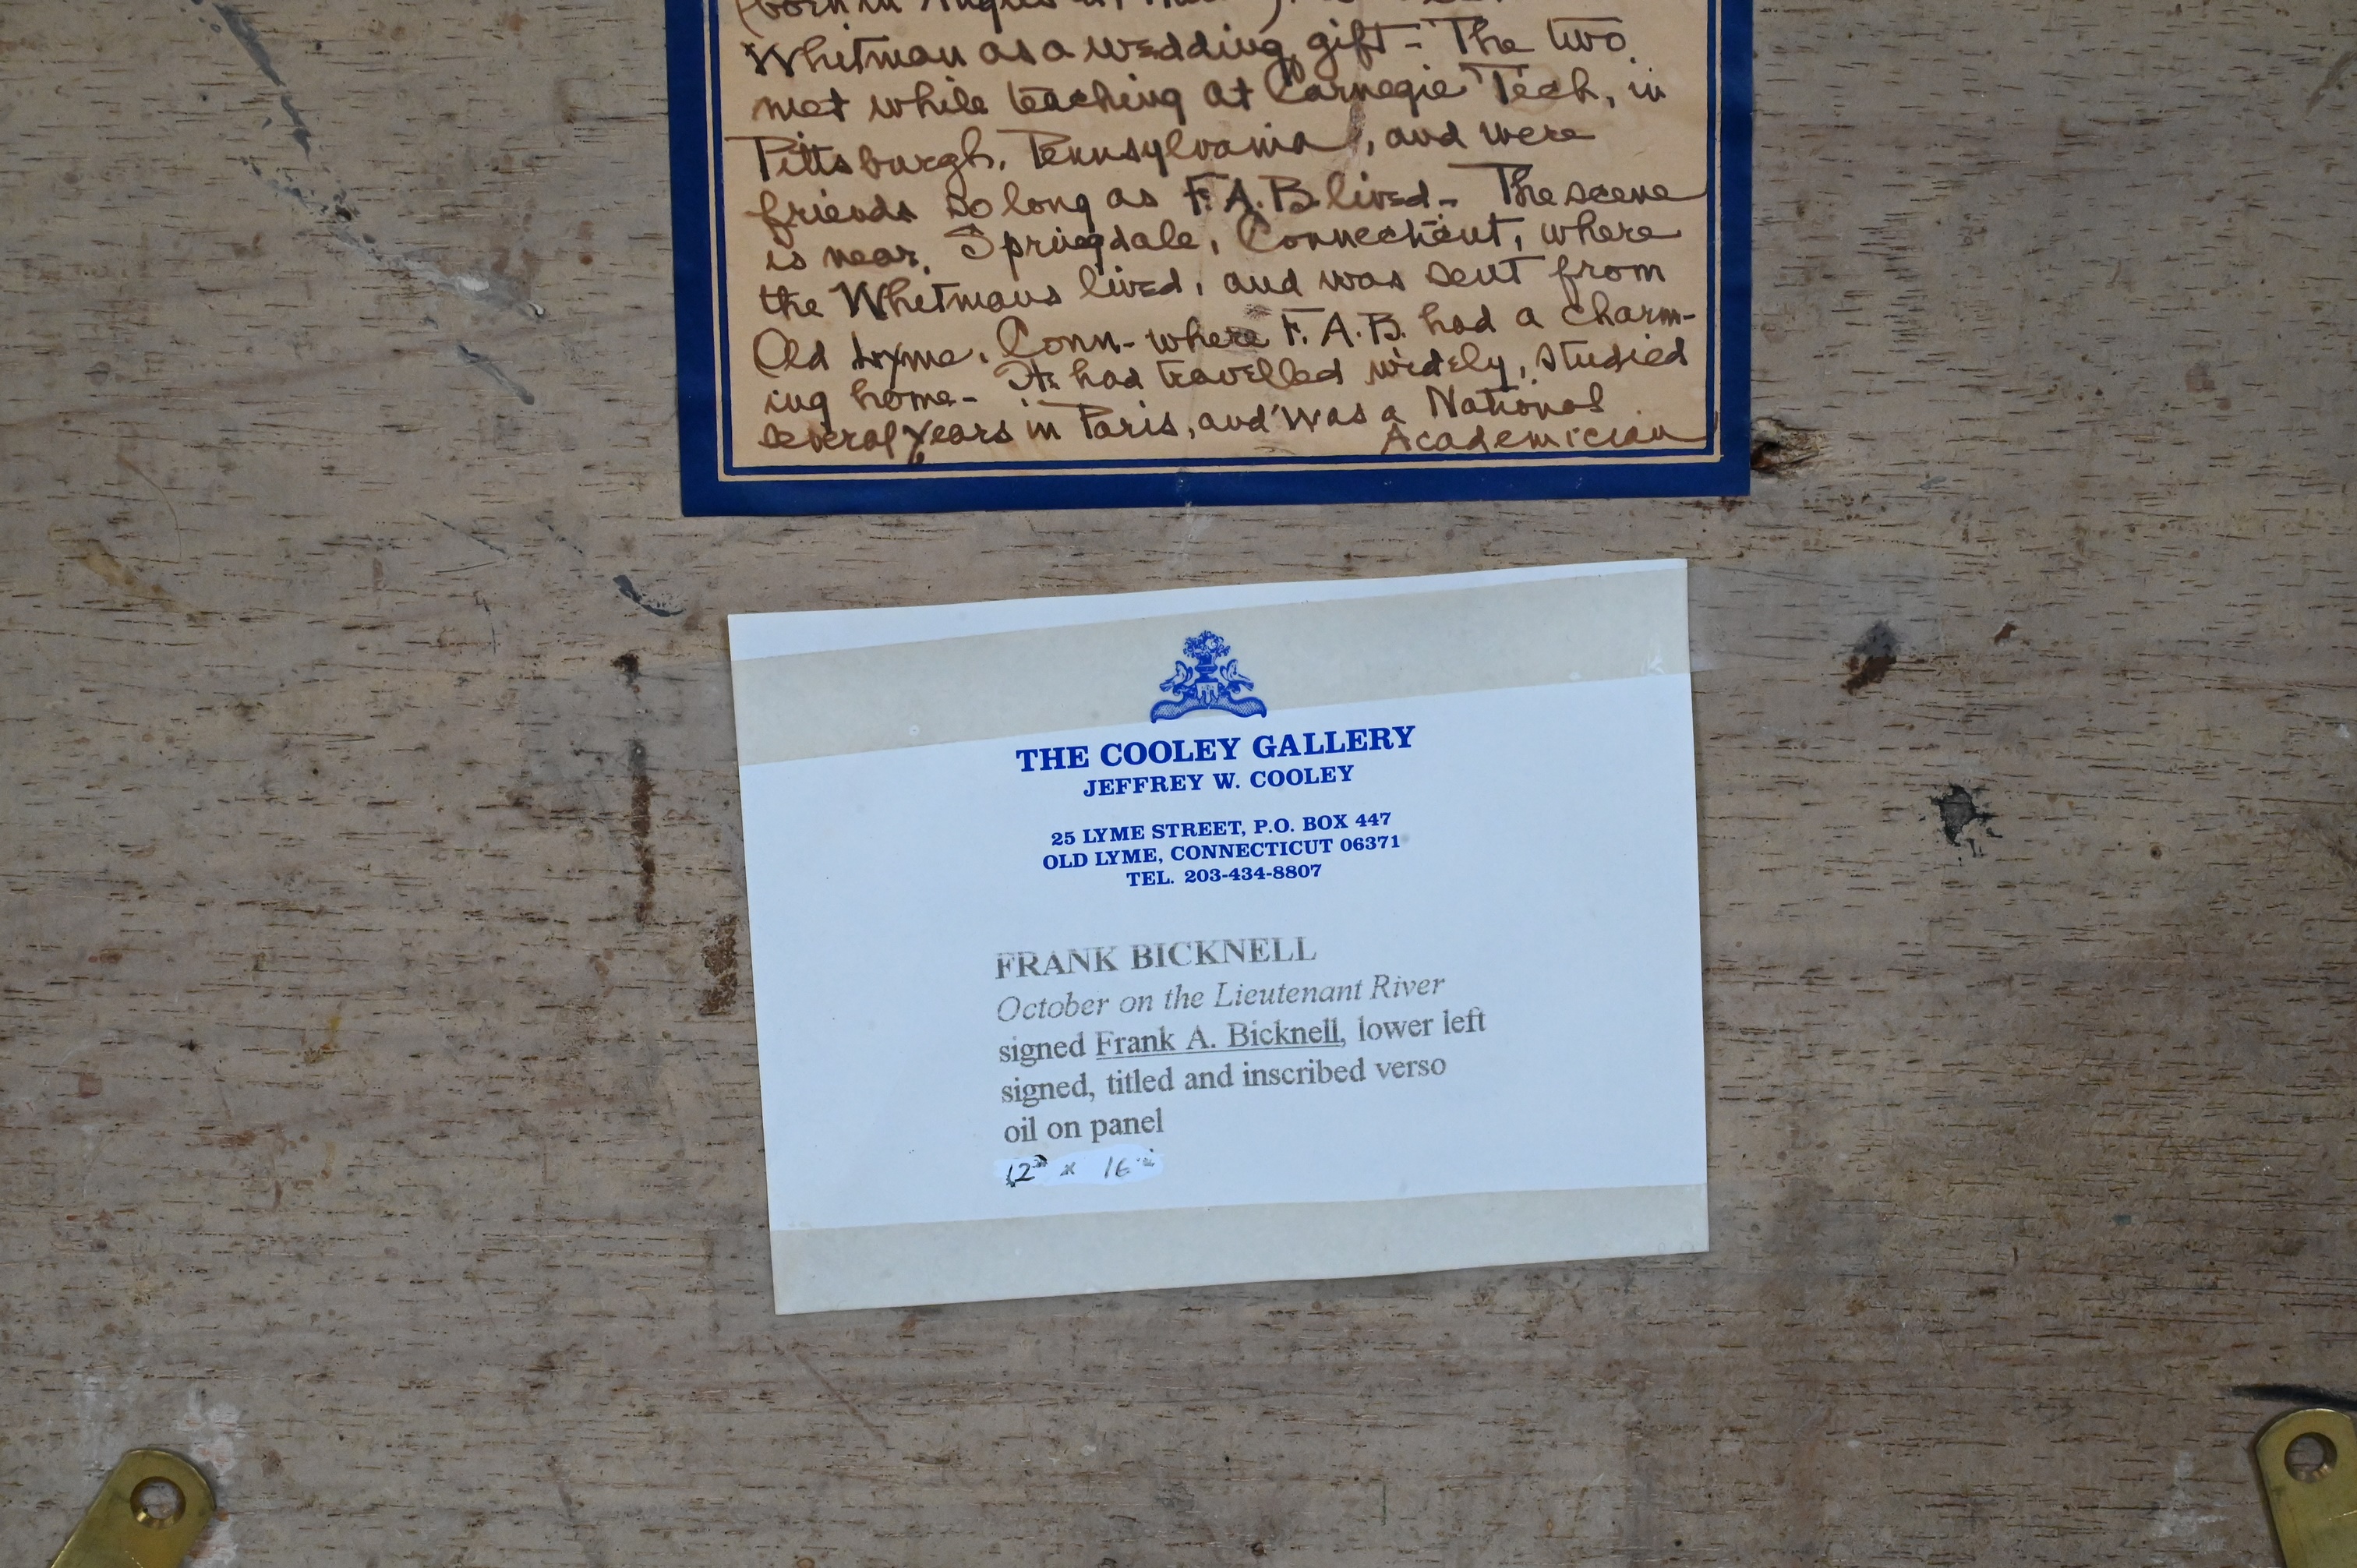 (born in
Whitman as a wedding gift - The two
met while teaching at Carnegie Tech, in
Pittsburgh, Pennsylvania, and were
friends so long as F. A. B lived - The scene
is near Springdale, Connecticut, where
the Whitmans lived, and was sent from
Old Lyme, Conn - where F. A. B. had a charm-
ing home - He had travelled widely, studied
several years in Paris, and was a National
Academician
THE COOLEY GALLERY
JEFFREY W. COOLEY
25 LYME STREET, P.O. BOX 447
OLD LYME, CONNECTICUT 06371
TEL. 203-434-8807
FRANK BICKNELL
October on the Lieutenant River
signed Frank A. Bicknell, lower left
signed, titled and inscribed verso
oil on panel
12" x 16"